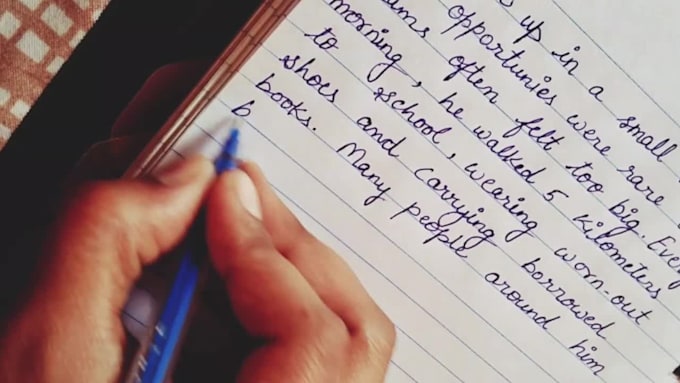 up in a small
opportunies were rare
often felt too big. Every
morning, he walked 5 kilometers
to school, wearing worn-out
shoes and carrying borrowed
books. Many people around him
b